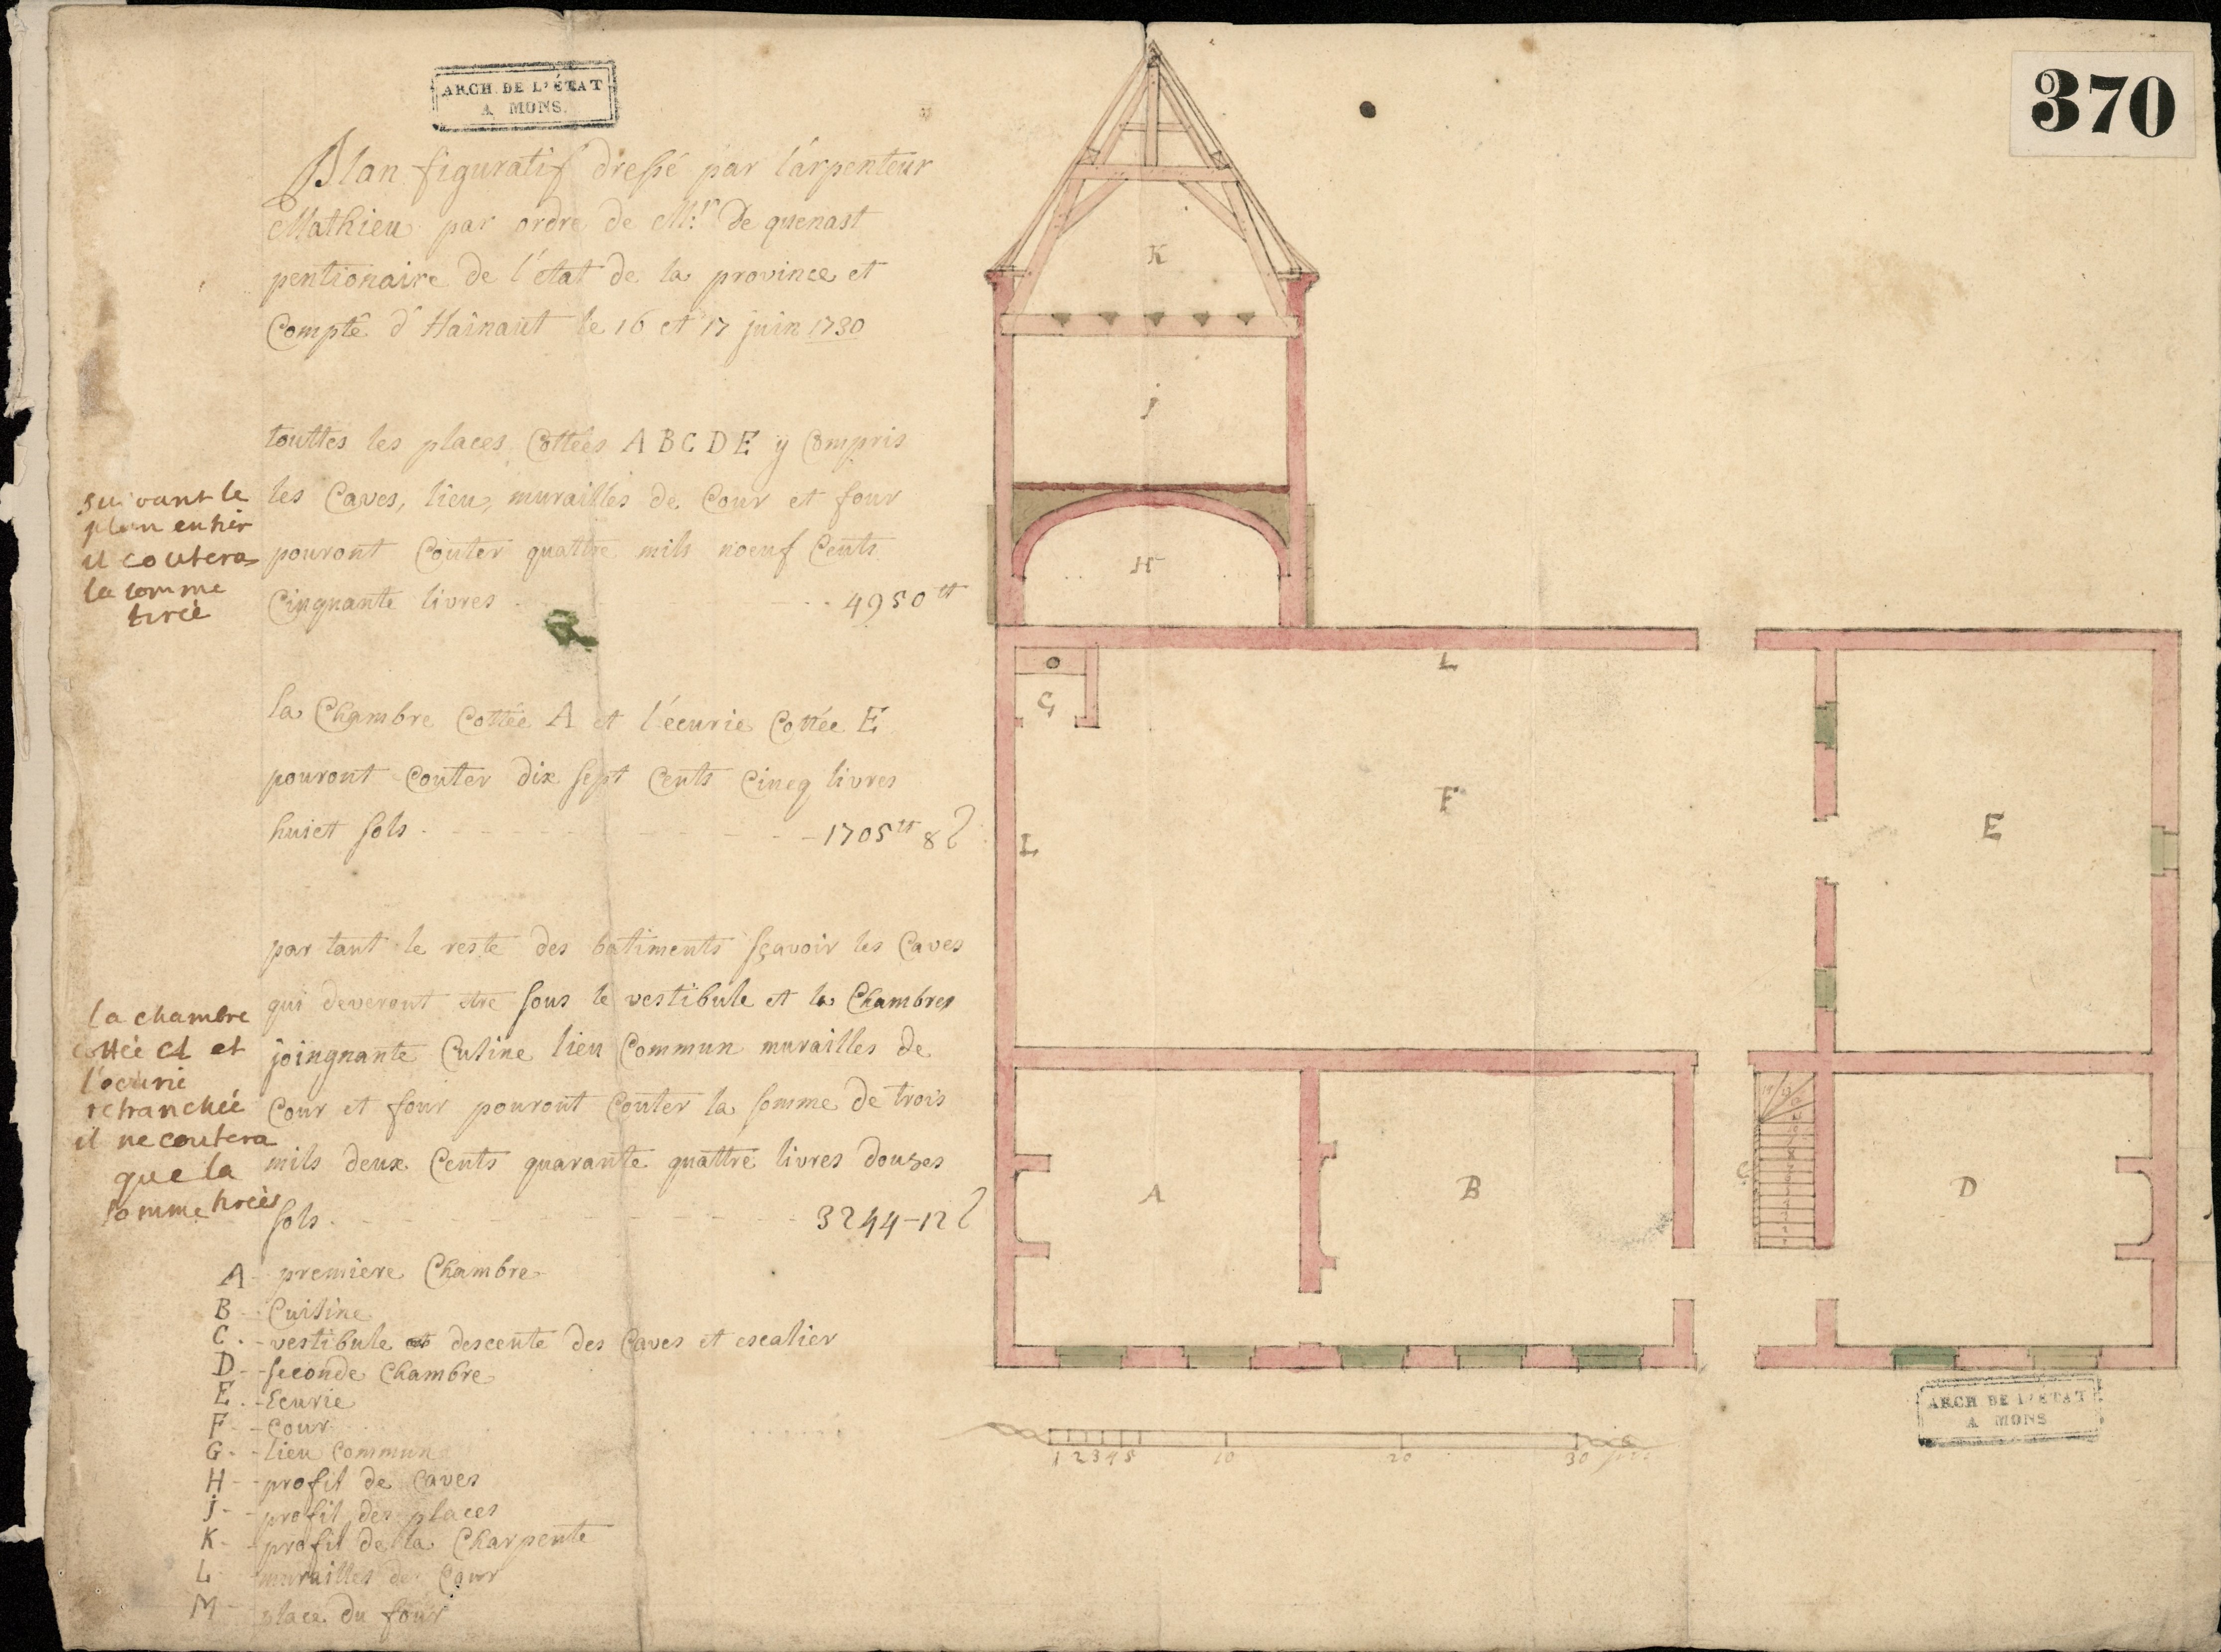 ARCH. DE L'ÉTAT
A MONS.
370
Plan figuratif dressé par l'arpenteur
Mathieu par ordre de Mr. De quenast
pentionaire de l'etat de la province et
Compté d'Hainaut le 16 et 17 juin 1730
touttes les places Cottées A B C D E ÿ Compris
les Caves, lieu, murailles de Cour et four
pouront Couter quattre mils noeuf Cents
Cinquante livres 4950 tt
suivant le
plan entier
il coutera
la somme
tirée
la Chambre Cottée A et l'écurie Cottée E
pouront Couter dix sept Cents Cincq livres
huict sols 1705 tt 8 s
par tant le reste des batiments sçavoir les Caves
qui deveront etre sous le vestibule et la Chambres
joingnante Cusine lieu Commun murailles de
Cour et four pouront Couter la somme de trois
mils deux Cents quarante quattre livres douzes
sols 3244-12 s
la chambre
cottée A et
l'ecurie
retranchée
il ne coutera
que la
somme tirées
A premiere Chambre
B Cuisine
C vestibule et descente des Caves et escalier
D seconde Chambre
E Ecurie
F Cour
G lieu Commun
H profil de Caves
j profil des places
K profil de la Charpente
L murailles de Cour
M place du four
K
j
H
L
G
F
L
E
A
B
C
D
1 2 3 4 5 10 20 30
ARCH DE L'ÉTAT
A MONS